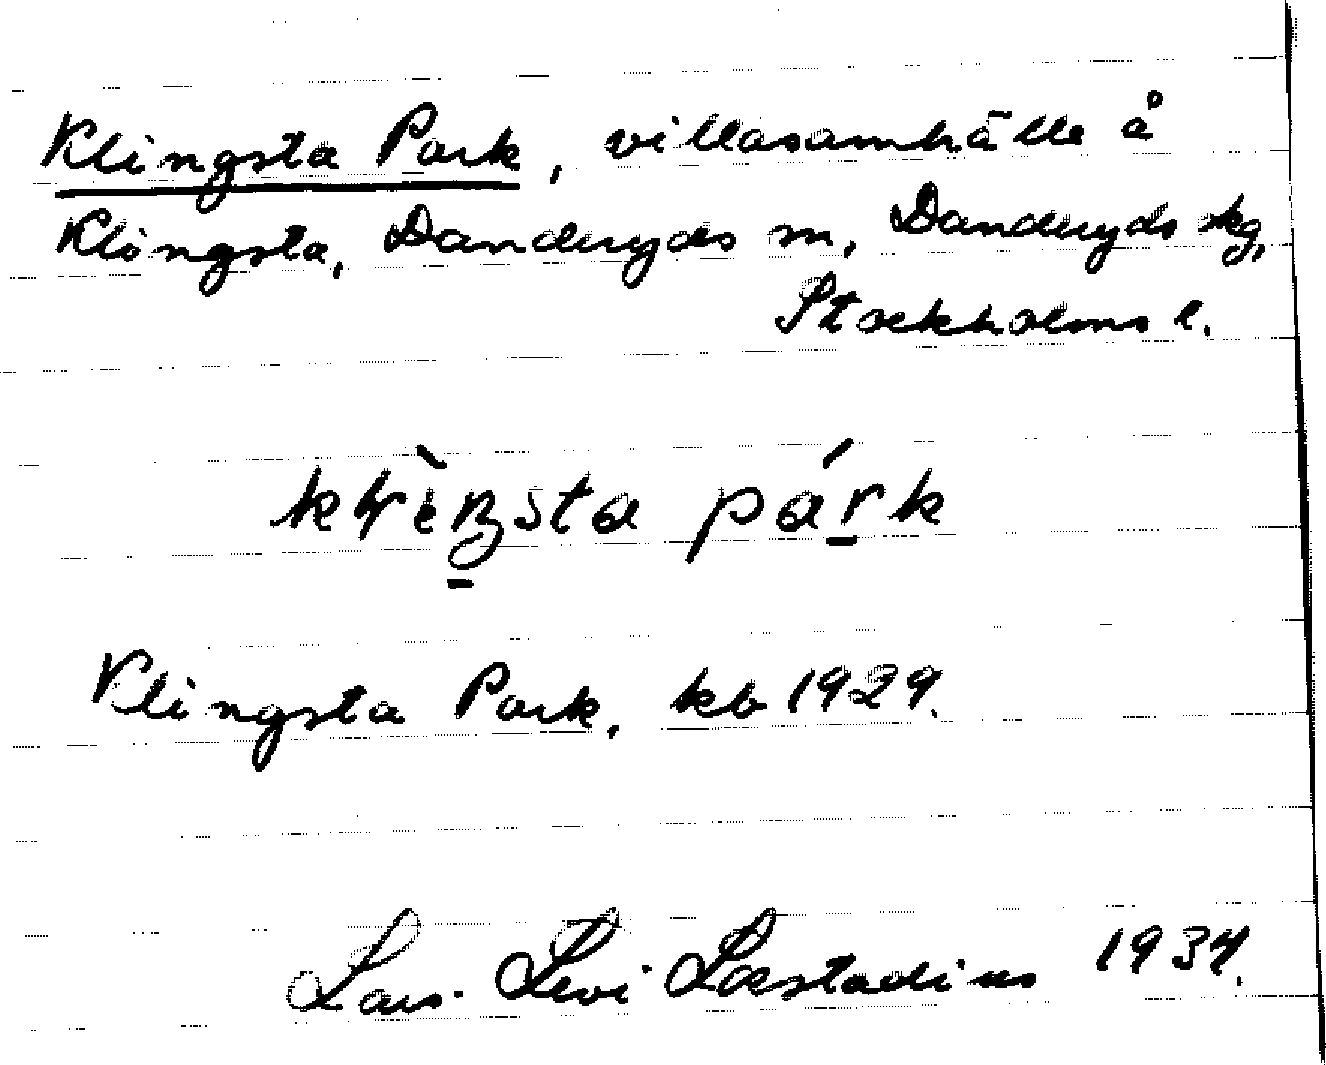 Klingsta Park, villasamhälle å
Klingsta, Danderyds sn, Danderyds kg,
Stockholms l.
park
Klingsta Park, kb 1929.
Lars-Levi Læstadius 1934.